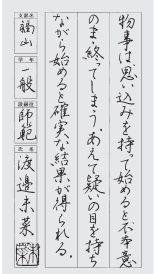 物事は思い込みを持って始めると不本意
のまま終てしまう。あえて疑いの目を持ち
ながら始めると確実な結果が得られる。
支部名
福山
学年
一般
段級位
師範
氏名
渡邉未菜